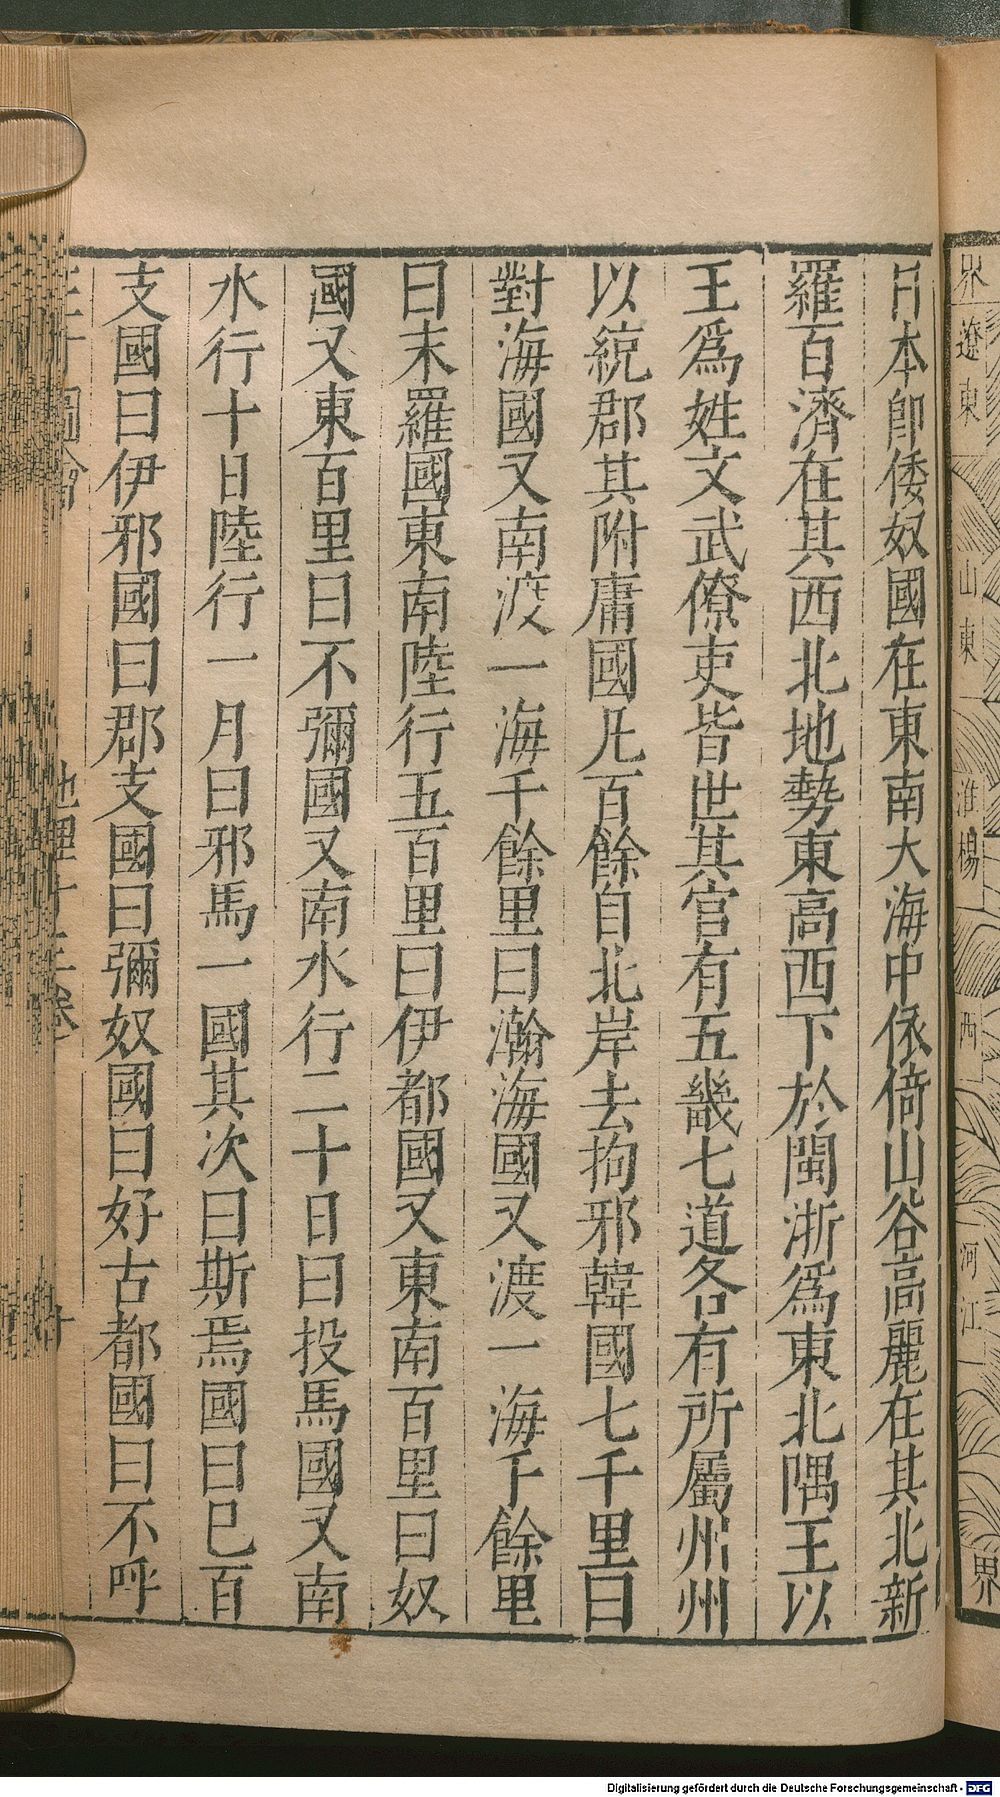 日本即倭奴國在東南大海中依倚山谷高麗在其北新
羅百濟在其西北地勢東高西下於閩浙爲東北隅王以
王爲姓文武僚吏皆世其官有五畿七道各有所屬州州
以統郡其附庸國凡百餘自北岸去拘邪韓國七千里曰
對海國又南渡一海千餘里曰瀚海國又渡一海千餘里
曰末羅國東南陸行五百里曰伊都國又東南百里曰奴
國又東百里曰不彌國又南水行二十日曰投馬國又南
水行十日陸行一月曰邪馬一國其次曰斯焉國曰巳百
支國曰伊邪國曰郡支國曰彌奴國曰好古都國曰不呼
界
遼東
山東
淮楊
西
河江
界
Digitalisierung gefördert durch die Deutsche Forschungsgemeinschaft - DFG